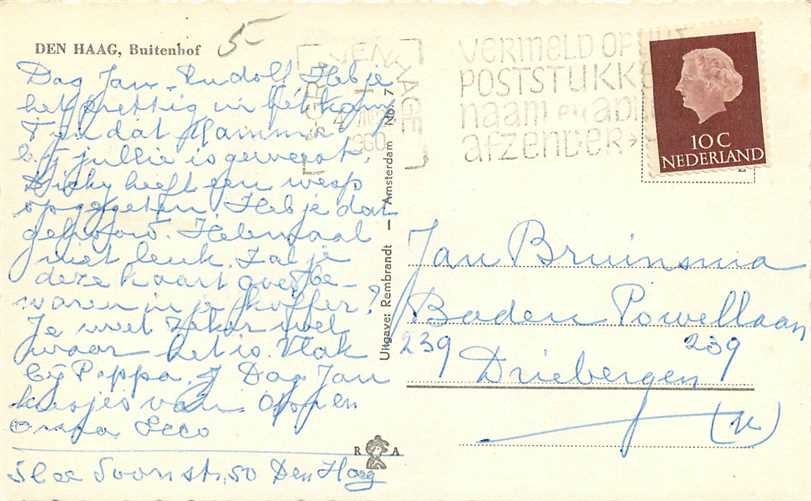 DEN HAAG, Buitenhof
5-
Dag Jan-Rudolf Heb je
het prettig in het kamp
Fijn dat Mamma
bij jullie is geweest.
Dicky heeft een wesp
opgegeten. Heb je dat
gehoord. Helemaal
niet leuk. Zal je
deze kaart goed be-
waren in je koffer?
Je weet zeker wel
waar het is. Vlak
bij Pappa. Dag Jan
kusjes van Opp en
Omma
50 Den Haag
Uitgave: Rembrandt - Amsterdam No. 7
R A
DEN HAAG
1960
VERMELD OP
POSTSTUKKE
naam en adre
afzender
10 C
NEDERLAND
Jan Bruinsma
Baden Powellaan
239 239
Driebergen
(U)